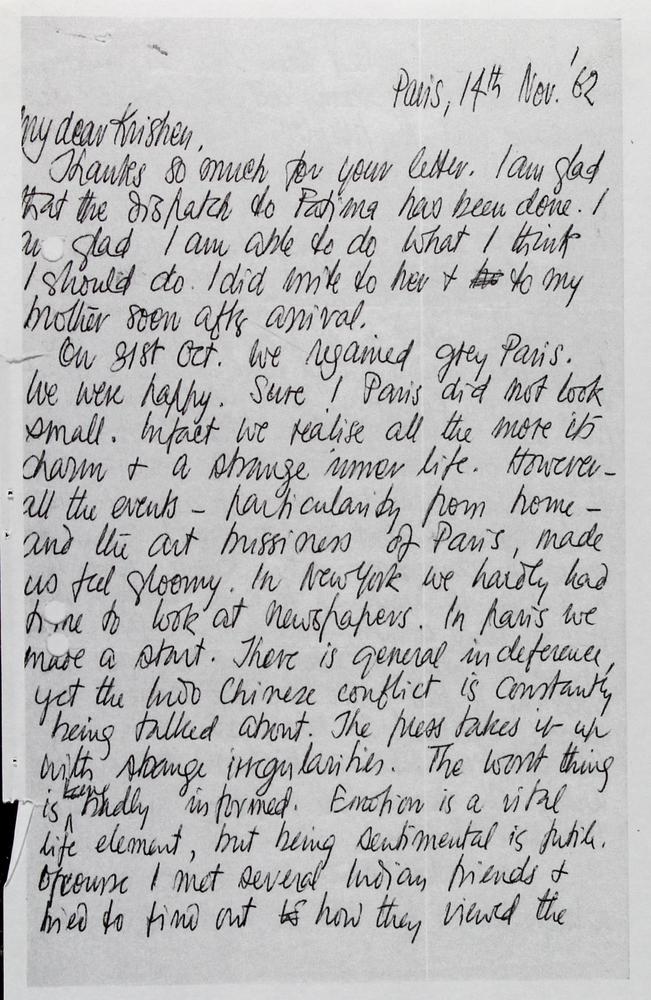 Paris, 14th Nov. '62
My dear Krishen,
Thanks so much for your letter. I am glad
that the dispatch to Fatima has been done. I
am glad I am able to do what I think
I should do. I did write to her & to my
mother soon after arrival.
On 31st Oct. we regained grey Paris.
We were happy. Sure! Paris did not look
small. Infact we realise all the more its
charm & a strange inner life. However –
all the events – particularily from home –
and the art bussiness of Paris, made
us feel gloomy. In New York we hardly had
time to look at newspapers. In Paris we
made a start. There is general indeference,
yet the Indo Chinese conflict is constantly
being talked about. The press takes it up
with strange irregularities. The worst thing
is being badly informed. Emotion is a vital
life element, but being sentimental is futile.
Ofcourse I met several Indian friends &
tried to find out how they viewed the